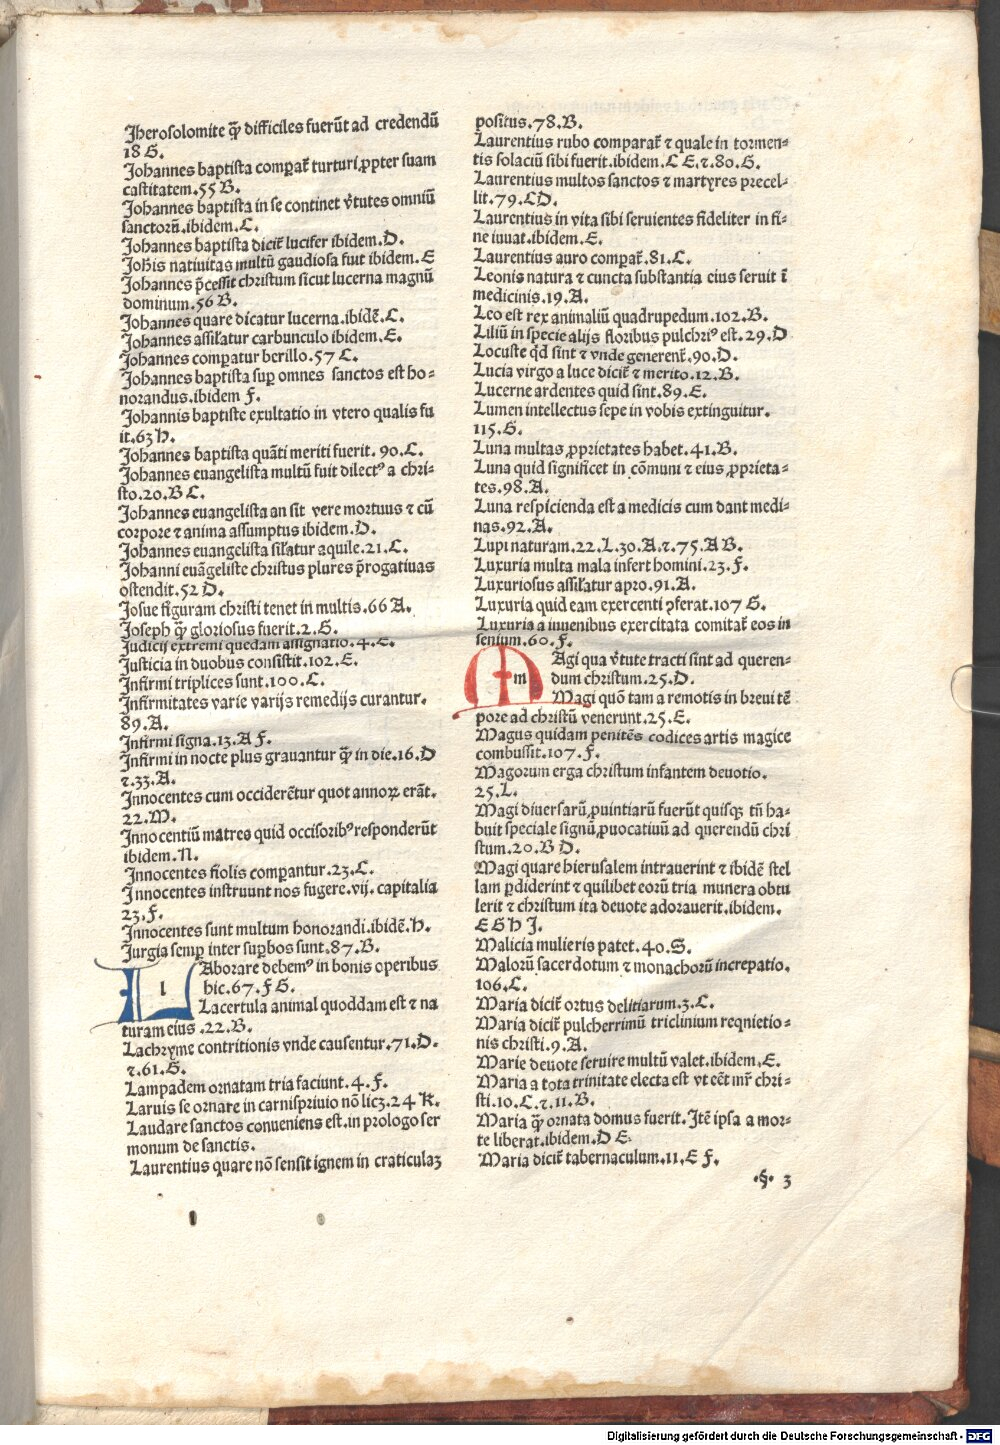 Jherosolomite q̄ꝫ difficiles fuerūt ad credendū
18 G.
Johannes baptista compaꝝat̄ turturi ꝓpter suam
castitatem.55 B.
Johannes baptista in se continet v̄tutes omniū
sanctorū.ibidem.C.
Johannes baptista dicit̄ lucifer ibidem.D.
Joh̄is natiuitas multū gaudiosa fuit ibidem.E
Johannes p̄cessit christum sicut lucerna magnū
dominum.56 B.
Johannes quare dicatur lucerna.ibidē.C.
Johannes assil̄atur carbunculo ibidem.E.
Johannes comꝑatur berillo.57 C.
Johannes baptista suꝑ omnes sanctos est ho-
norandus.ibidem F.
Johannis baptiste exultatio in vtero qualis fu
it.63 H.
Johannes baptista quāti meriti fuerit. 90.C.
Johannes euangelista multū fuit dilectꝰ a chri-
sto.20.B C.
Johannes euangelista an sit vere mortuus ⁊ cū
corpore ⁊ anima assumptus ibidem.D.
Johannes euangelista sil̄atur aquile.21.C.
Johanni euāgeliste christus plures p̄rogatiuas
ostendit.52 D.
Josue figuram christi tenet in multis.66 A.
Joseph q̄ꝫ gloriosus fuerit.2.G.
Judicij extremi quedam assignatio.4.E.
Justicia in duobus consistit.102.E.
Infirmi triplices sunt.100.C.
Infirmitates varie varijs remedijs curantur.
89.A.
Infirmi signa.13.A F.
Infirmi in nocte plus grauantur q̄ꝫ in die.16.D
⁊.33.A.
Innocentes cum occiderētur quot annoꝝ erāt.
22.M.
Innocentiū matres quid occisoribꝰ responderūt
ibidem.N.
Innocentes fiolis comꝑantur.23.C.
Innocentes instruunt nos fugere.vij. capitalia
23.F.
Innocentes sunt multum honorandi.ibidē.H.
Jurgia semꝑ inter suꝑbos sunt.87.B.
l Aborare debemꝰ in bonis operibus
hic.67.F G.
Lacertula animal quoddam est ⁊ na
turam eius .22.B.
Lachryme contritionis vnde causentur.71.D.
⁊.61.G.
Lampadem ornatam tria faciunt.4.F.
Laruis se ornare in carnispriuio nō licꝫ.24 K.
Laudare sanctos conueniens est.in prologo ser
monum de sanctis.
Laurentius quare nō sensit ignem in craticulaꝫ
positus.78.B.
Laurentius rubo comparat̄ ⁊ quale in tormen-
tis solaciū sibi fuerit.ibidem.C E.⁊.80.G.
Laurentius multos sanctos ⁊ martyres precel-
lit.79.C D.
Laurentius in vita sibi seruientes fideliter in fi-
ne iuuat.ibidem.E.
Laurentius auro comꝑat̄.81.C.
Leonis natura ⁊ cuncta substantia eius seruit ī
medicinis.19.A.
Leo est rex animaliū quadrupedum.102.B.
Liliū in specie alijs floribus pulchriꝰ est.29.D
Locuste qd̄ sint ⁊ vnde generent̄.90.D.
Lucia virgo a luce dicit̄ ⁊ merito.12.B.
Lucerne ardentes quid sint.89.E.
Lumen intellectus sepe in vobis extinguitur.
115.G.
Luna multas ꝓprietates habet.41.B.
Luna quid significet in cōmuni ⁊ eius ꝓprieta-
tes.98.A.
Luna respicienda est a medicis cum dant medi-
nas.92.A.
Lupi naturam.22.L.30.A.⁊.75.A B.
Luxuria multa mala infert homini.23.F.
Luxuriosus assil̄atur apro.91.A.
Luxuria quid eam exercenti ꝓferat.107 G.
Luxuria a iuuenibus exercitata comitat̄ eos in
senium.60.F.
m Agi qua v̄tute tracti sint ad queren-
dum christum.25.D.
Magi quō tam a remotis in breui tē
pore ad christū venerunt.25.E.
Magus quidam penitēs codices artis magice
combussit.107.F.
Magorum erga christum infantem deuotio.
25.L.
Magi diuersarū ꝓuintiarū fuerūt quisqꝫ tn̄ ha-
buit speciale signū ꝓuocatiuū ad querendū chri
stum.20.B D.
Magi quare hierusalem intrauerint ⁊ ibidē stel
lam ꝑdiderint ⁊ quilibet eorū tria munera obtu
lerit ⁊ christum ita deuote adorauerit.ibidem.
E G H I.
Malicia mulieris patet.40.S.
Malorū sacerdotum ⁊ monachorū increpatio.
106.C.
Maria dicit̄ ortus delitiarum.3.C.
Maria dicit̄ pulcherrimū triclinium reqnietio-
nis christi.9.A.
Marie deuote seruire multū valet.ibidem.E.
Maria a tota trinitate electa est vt eēt mr̄ chri-
sti.10.C.⁊.11.B.
Maria q̄ꝫ ornata domus fuerit. Itē ipsa a mor-
te liberat.ibidem.D E.
Maria dicit̄ tabernaculum.11.E F.
.§. 3
Digitalisierung gefördert durch die Deutsche Forschungsgemeinschaft - DFG